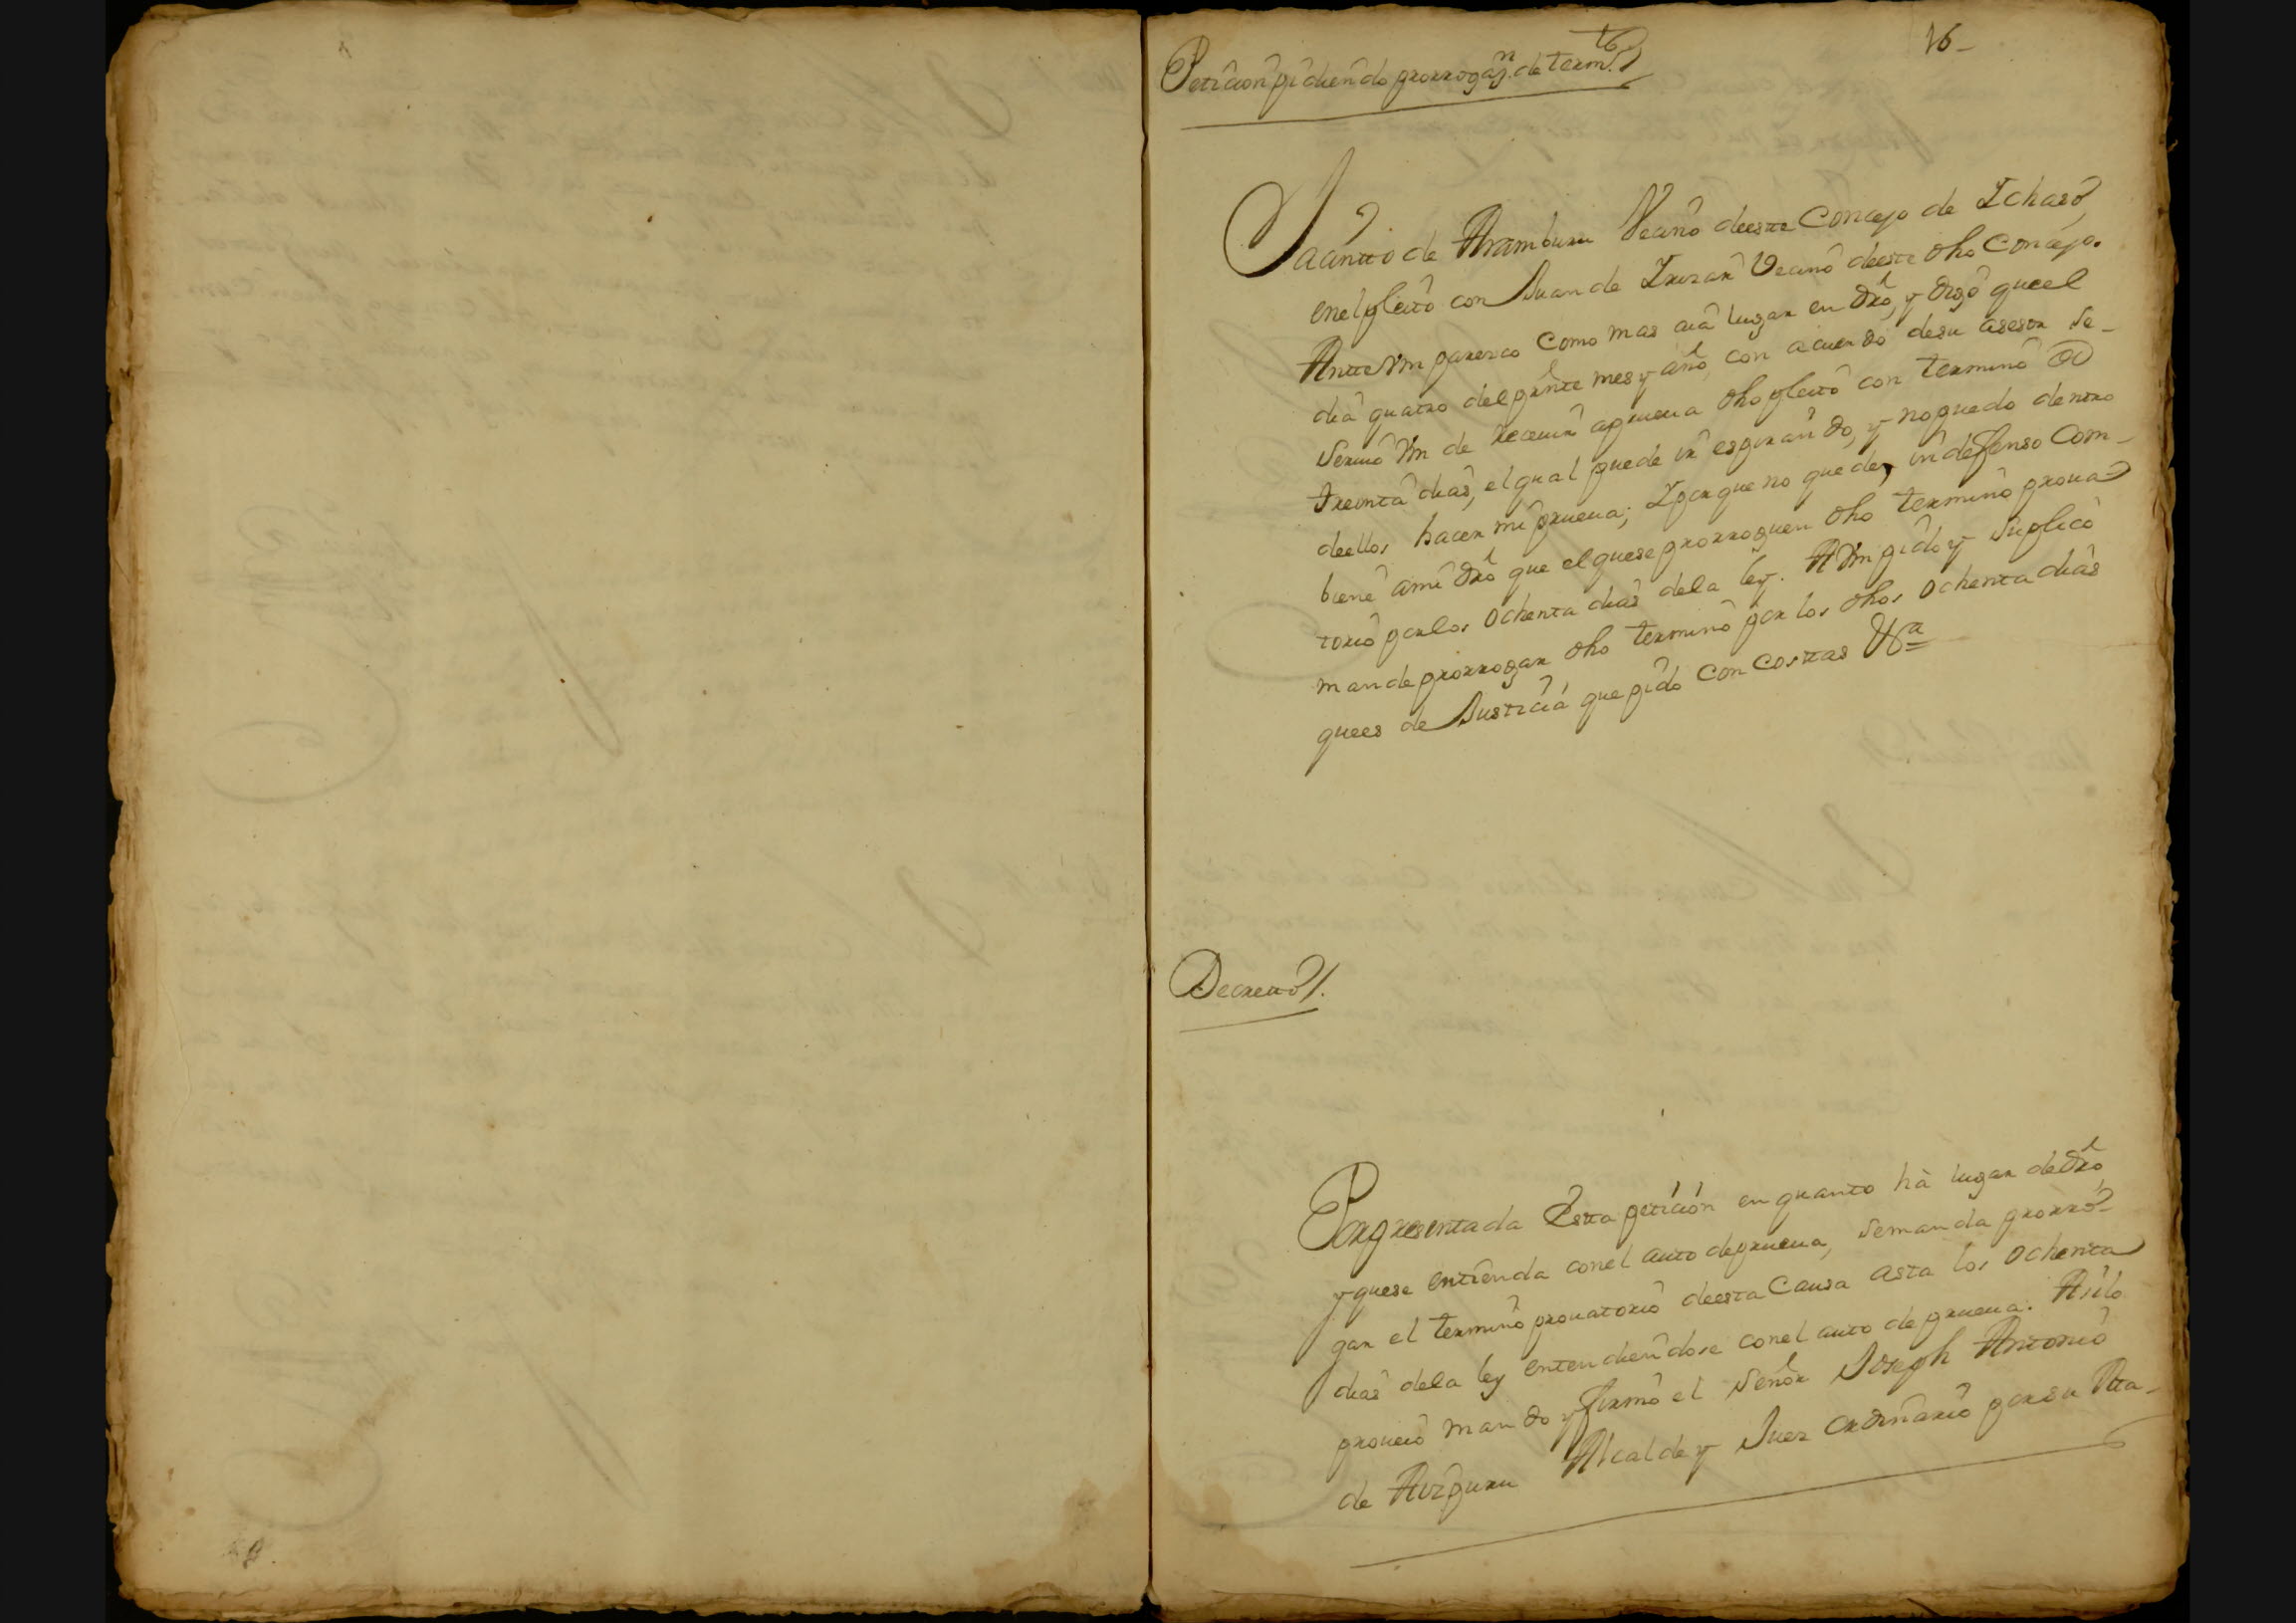 16-
Peticion pidiendo prorrogaz.n de term.to
Jacintto de Aramburu Vecino deeste Concejo de Ichaso,
enel pleito con Juan de Irizar Vecino deeste dho Concejo.
Antte Vm parezco como mas aia lugar en dro, y digo queel
dia quatro del prnte mes y año, con acuerdo desu asesor se-
siruio Vm de receuir aprueua dho pleito con termino de
treinta dias, elqual puede ir espirando, y no puedo dentro
deellos hacer mi prueua; Y porque no quede indeffenso Com-
biene ami dro que el quese prorroguen dho termino proua
torio porlos ochenta dias dela ley. A Vm pido y suplico
mande prorrogar dho termino por los dhos ochenta dias
quees de Justicia que pido con costtas V.a
Decretto/.
Por presentada Estta peticion en quanto hà lugar de dro,
y quese entienda conel auto deprueua, semanda prorro-
gar el termino prouatorio deesta Causa asta los ochenta
dias dela ley entendiendose conel auto de prueua. Asilo
proueio mando y firmo el Señor Joseph Antonio
de Aizpuru Alcalde y Juez ordinario porsu Ma-